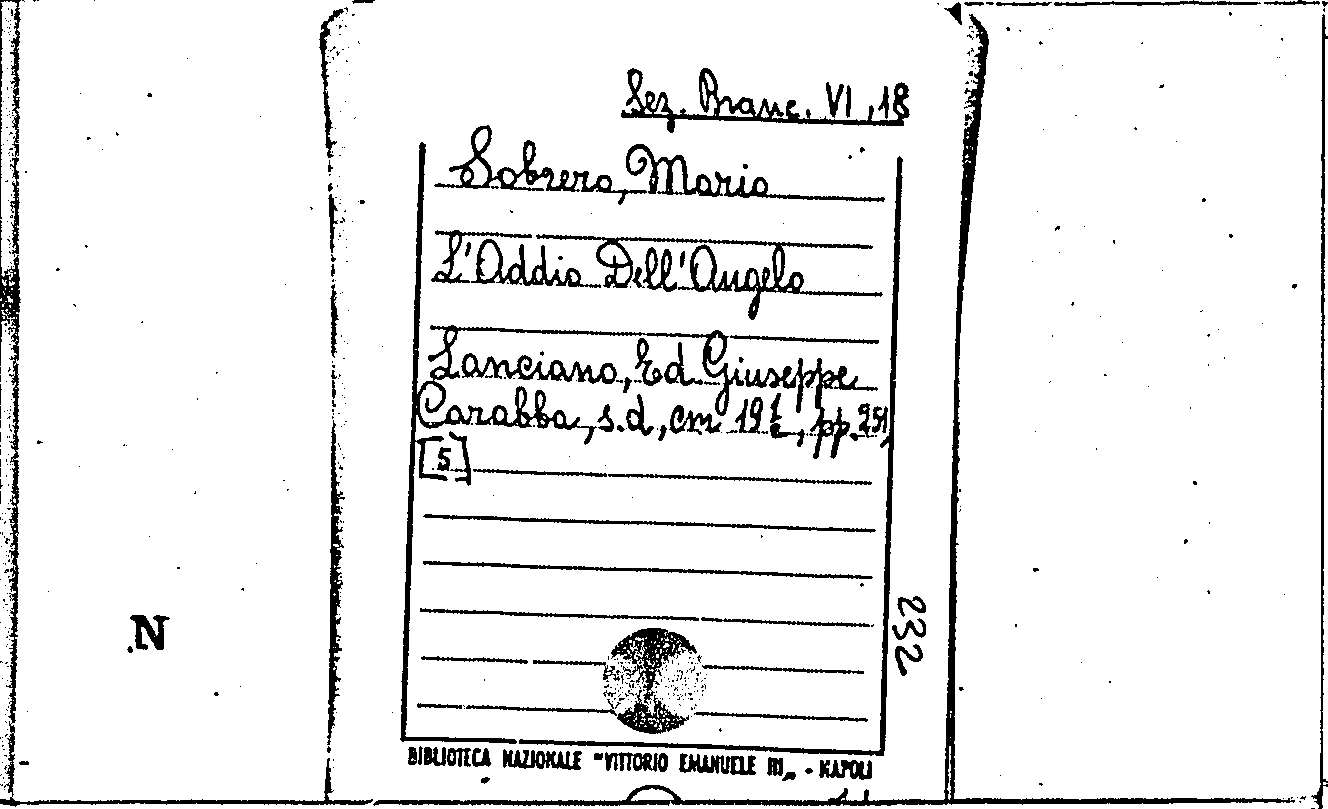 Sez. Branc. VI, 18
Sobrero, Mario
L'Addio Dell'Angelo
Lanciano, Ed Giuseppe
Carabba, s.d, cm 19½, pp. 251,
[5]
232
N
BIBLIOTECA NAZIONALE "VITTORIO EMANUELE III„ - NAPOLI